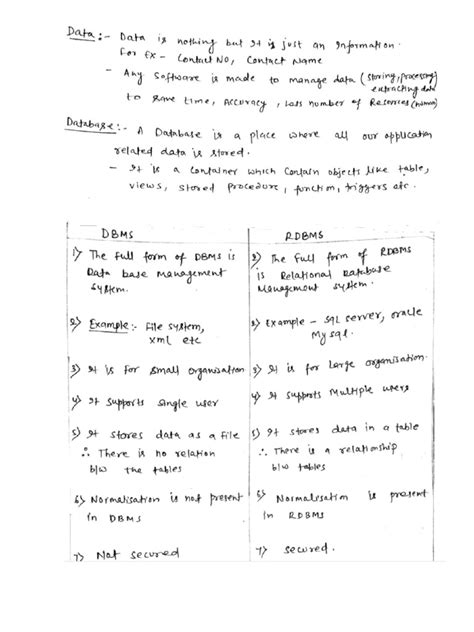 Data :- Data is nothing but It is just an Information.
For Ex - Contact No, Contact Name
- Any Software is made to manage data (storing, processing
extracting data
to save time, Accuracy, Less number of Resources (human)
Database:- A Database is a place where all our application
related data is stored.
- It is a Container which Contain objects like table,
views, Stored Procedure, function, triggers etc.
DBMS
1) The Full form of DBMS is
Data base Management
System.
2) Example:- File System,
xml etc
3) It is For Small Organisation
4) It Supports Single user
5) It Stores data as a file
∴ There is no relation
b/w the tables
6) Normalisation is not present
in DBMS
7) Not Secured
RDBMS
The Full form of RDBMS
is Relational Database
Management System.
2) Example - SQL Server, Oracle
My sql.
3) It is for Large Organisation.
4) It Supports Multiple users
5) It stores data in a table
∴ There is a relationship
b/w tables
6) Normalisation is present
in RDBMS
7) Secured.